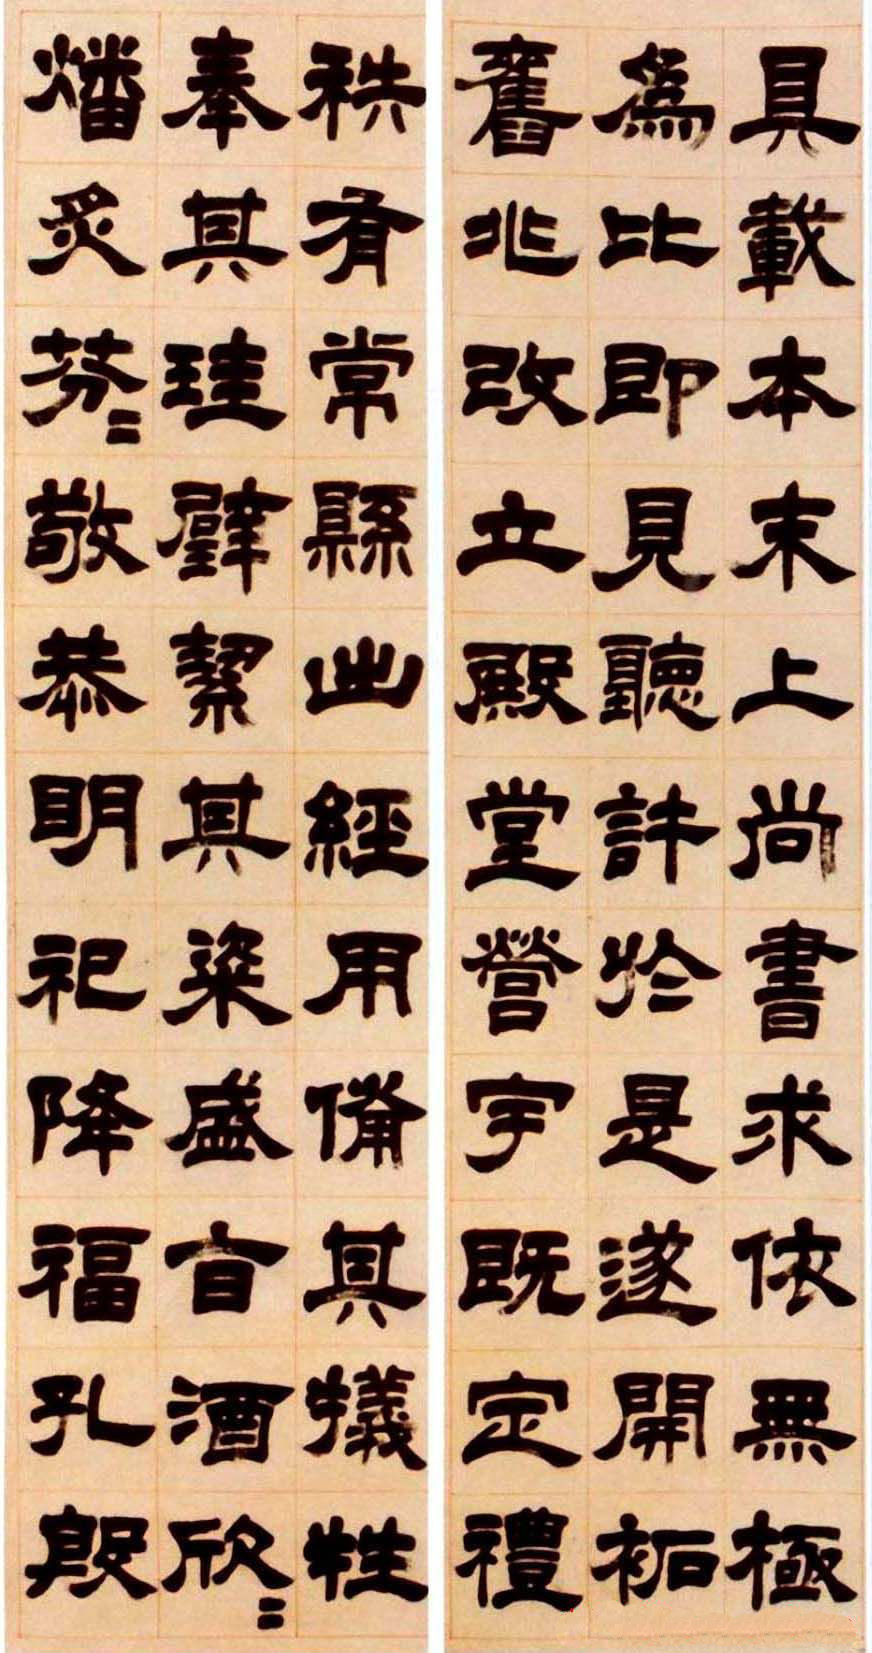 具載本末上尚書求依無極
為比即見聽許於是遂開袥
舊兆改立殿堂營宇既定禮
秩有常縣出經用備其犧牲
奉其珪璧絜其粢盛旨酒欣〻
燔炙芬〻敬恭明祀降福孔殷